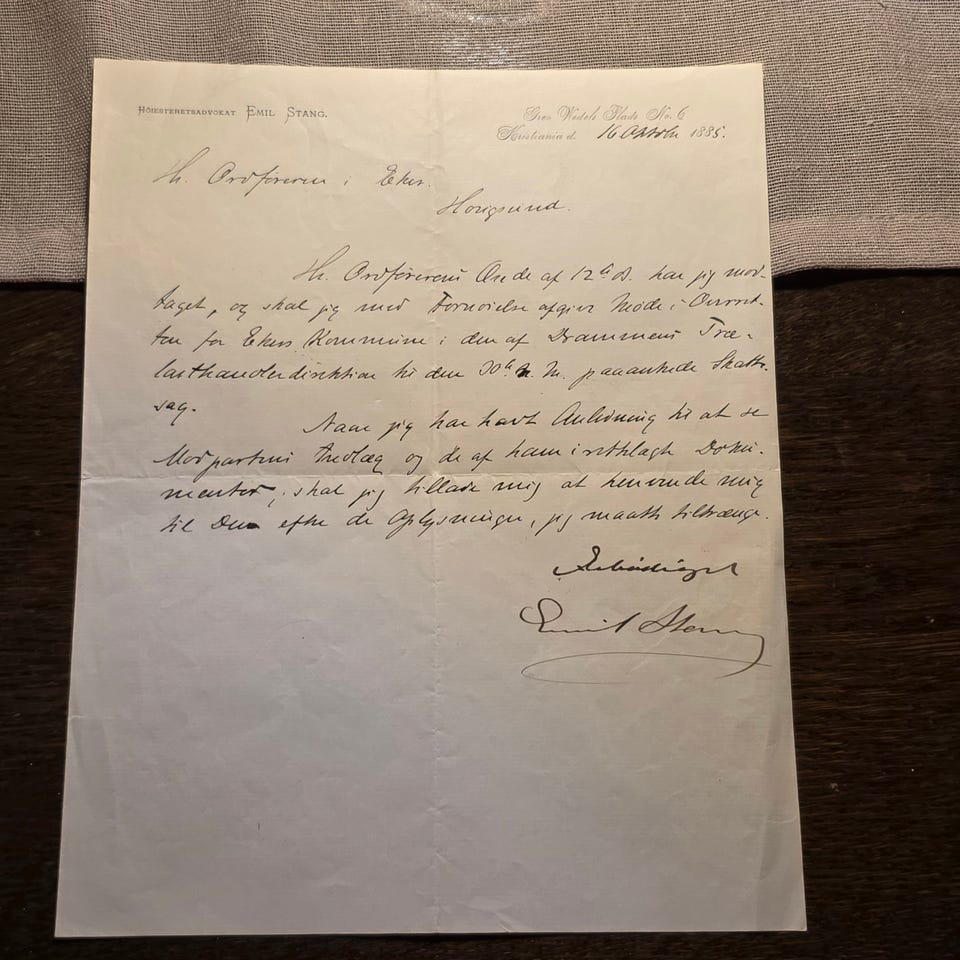 HÖIESTERETSADVOKAT EMIL STANG.
Grev Wedels Plads No. 6
Kristiania d. 16 Oktobr 1885.
Hr. Ordføreren i Eker.
Hougsund.
Hr. Ordførerens Ærede af 12te ds. har jeg mod-
taget, og skal jeg med Fornøielse afgive Møde i Overret-
ten for Ekers Kommune i den af Drammens Træ-
lasthandlerdirektion til den 30te N. M. paaankede Skatte-
sag.
Naar jeg har havt Anledning til at se
Modpartens Indlæg og de af ham i retlagte Doku-
menter, skal jeg tillade mig at henvende mig
til Dem efter de Oplysninger, jeg maatte tiltrænge.
Ærbødigst
Emil Stang